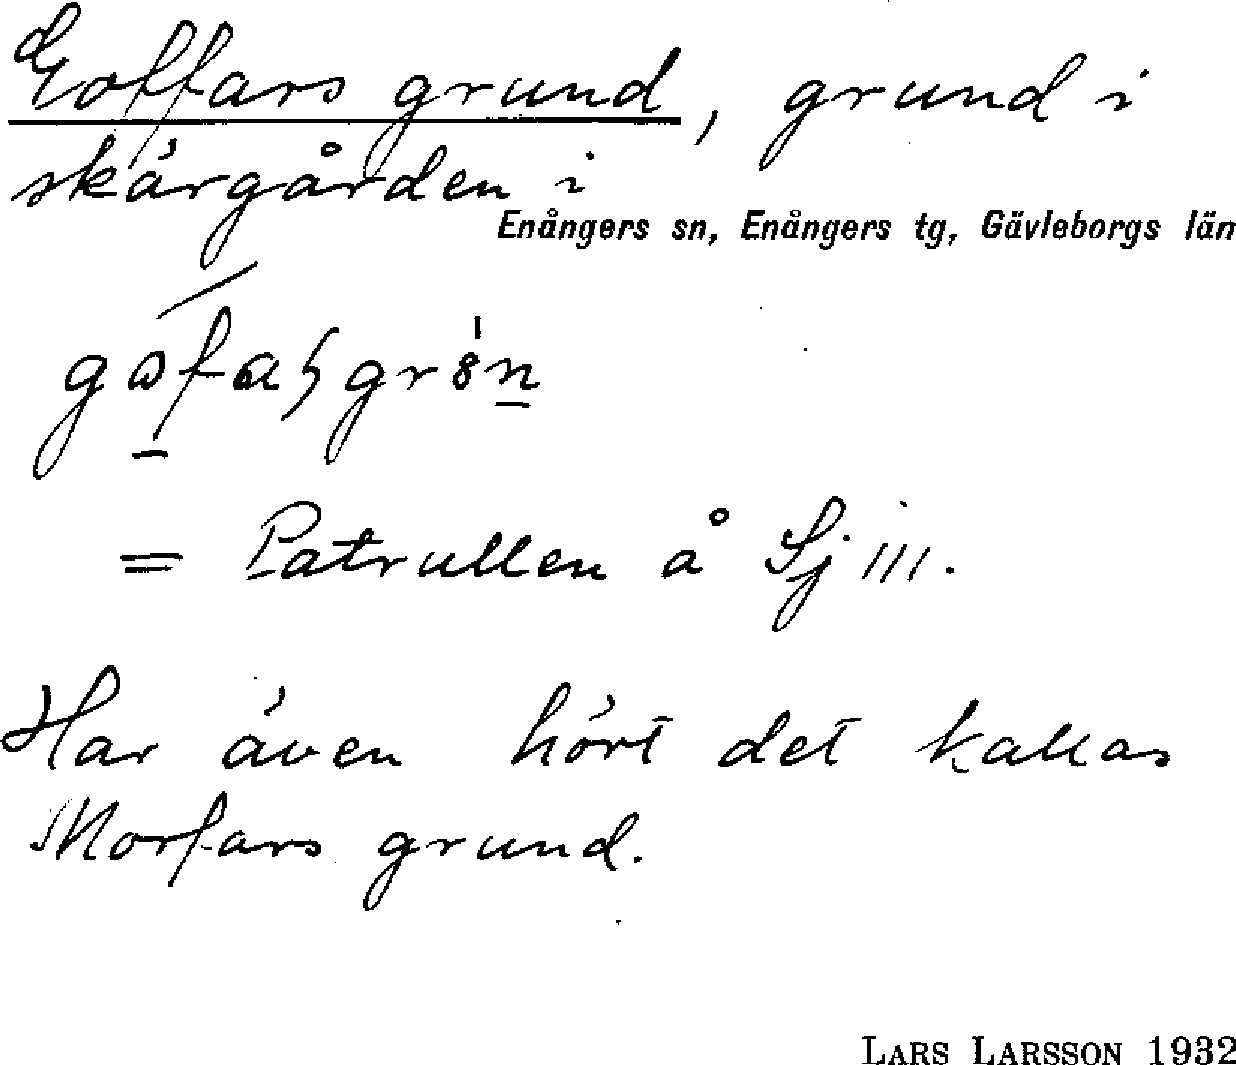 Goffars grund, grund i
skärgården i
Enångers sn, Enångers tg, Gävleborgs län
= Patrullen å Sj 111.
Har även hört det kallas
Morfars grund.
LARS LARSSON 1932